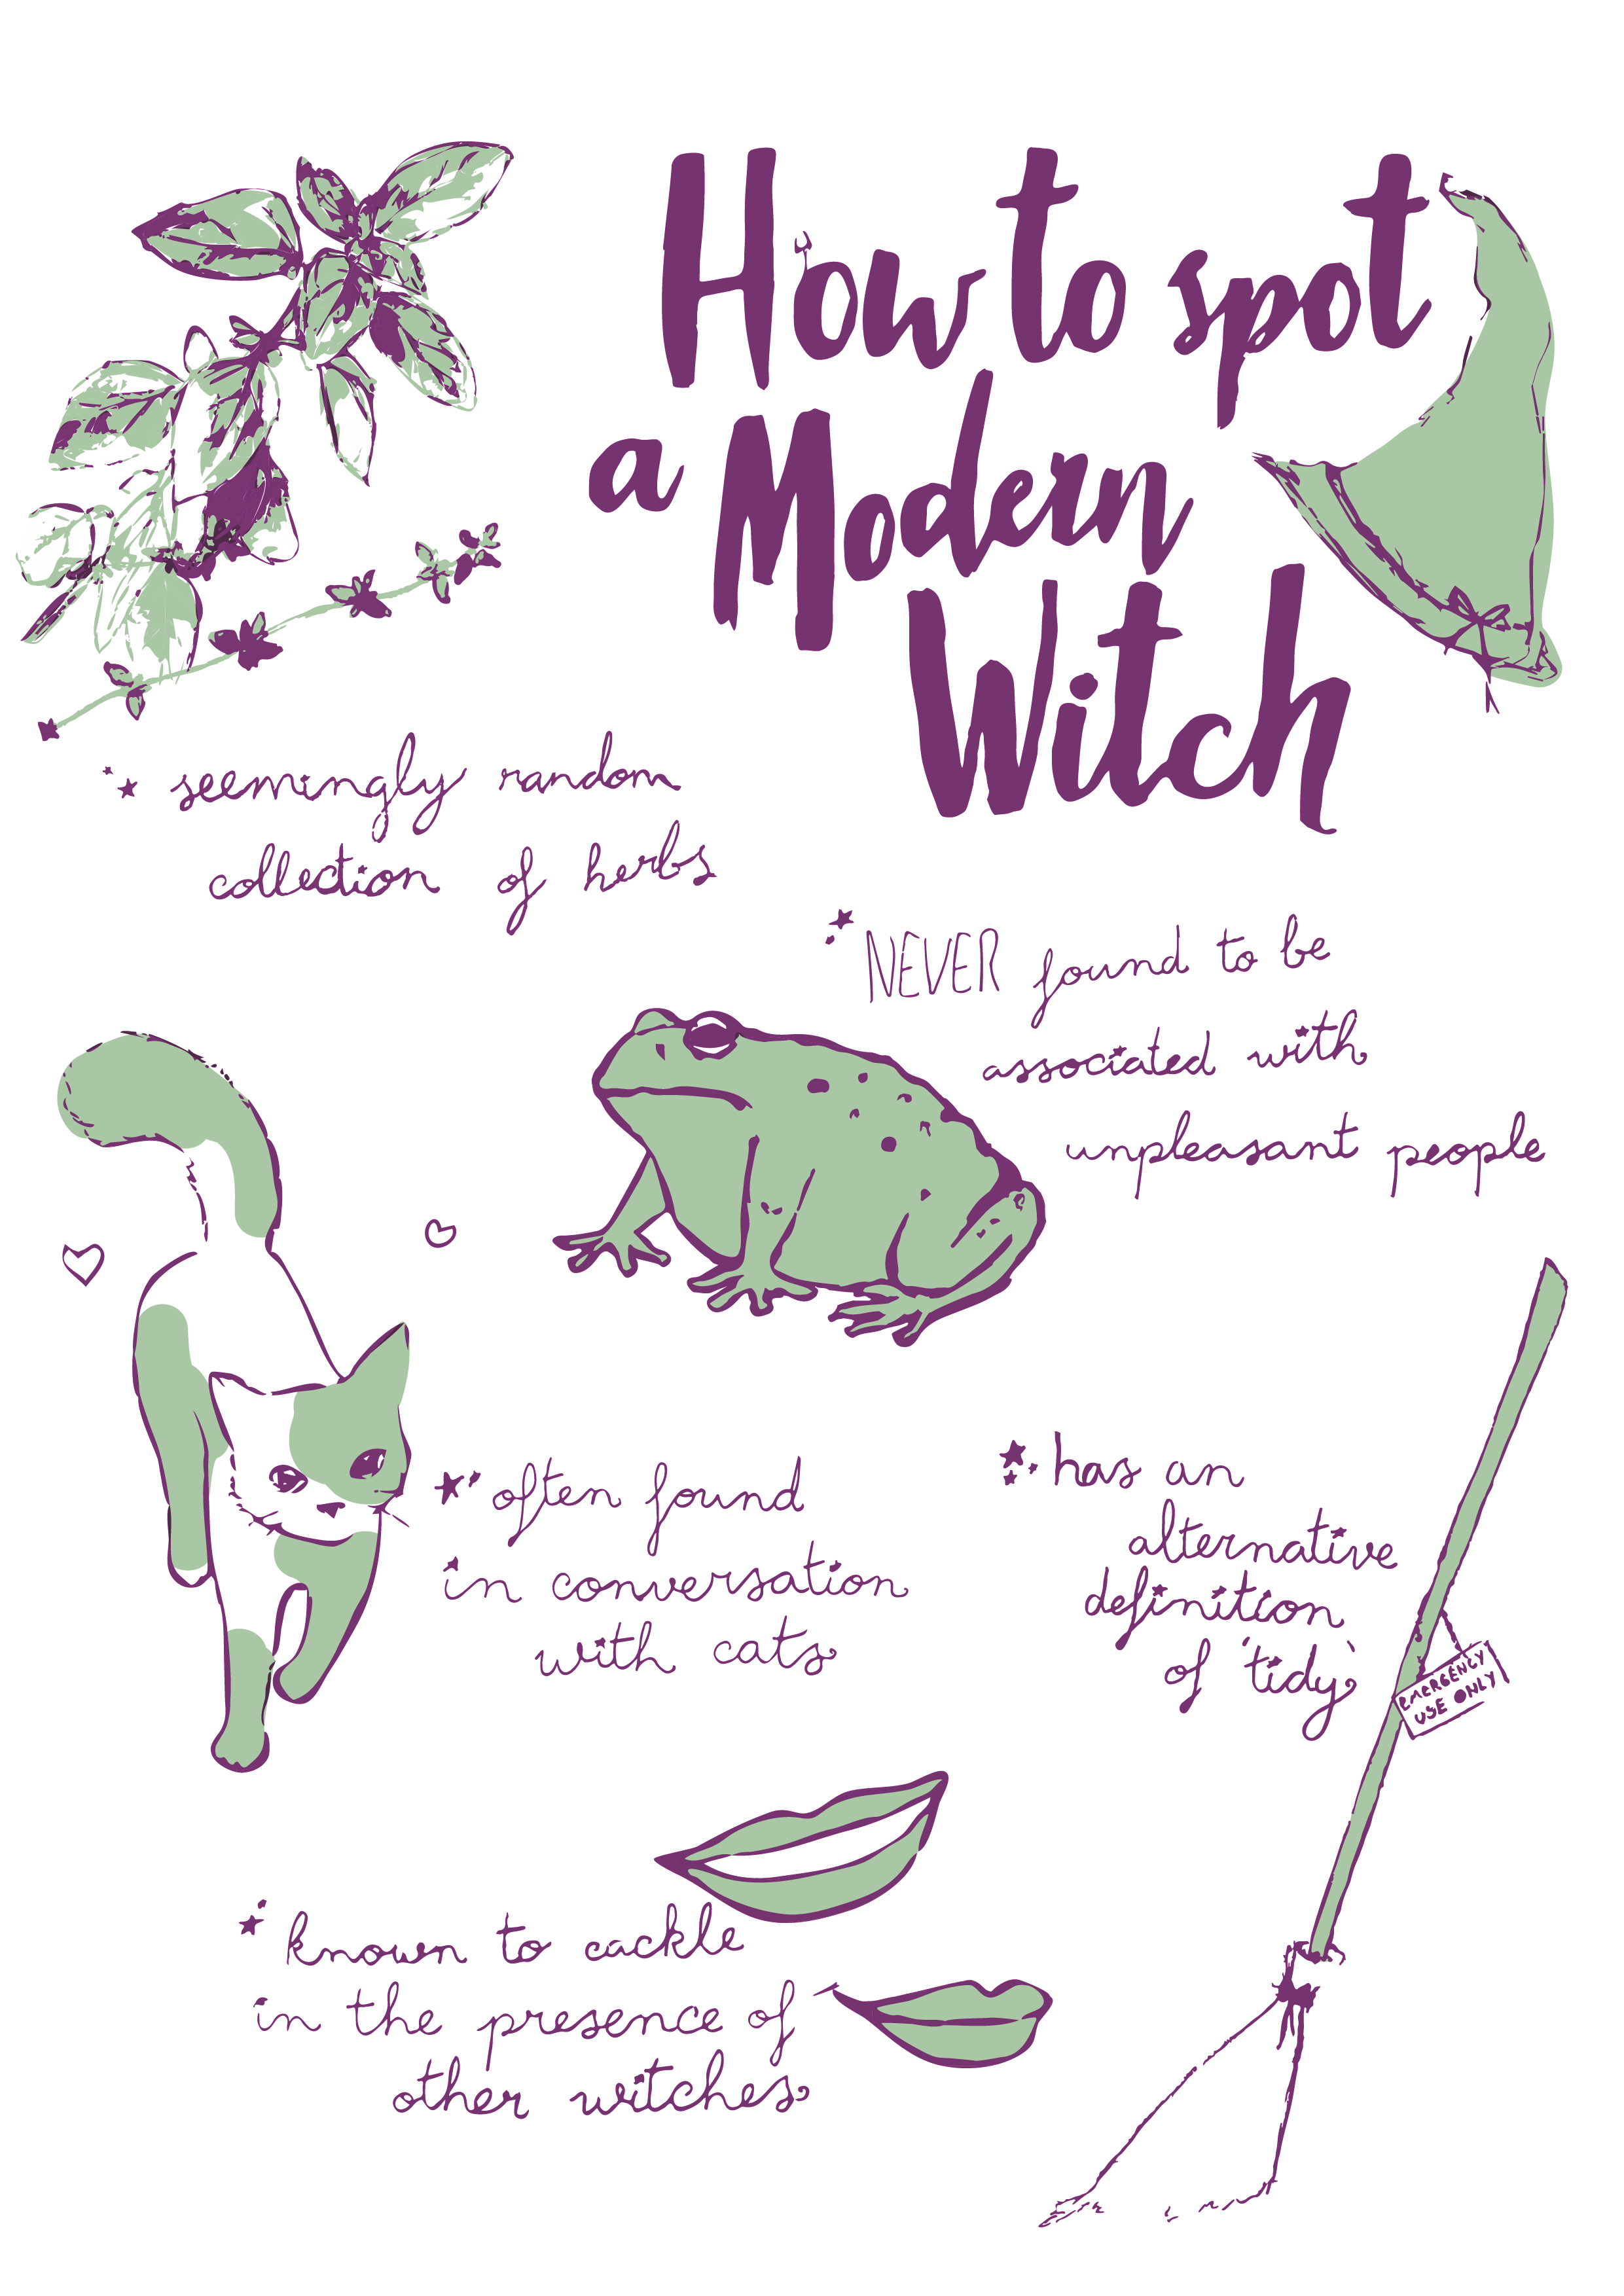 How to spot
a Modern
Witch
seemingly random
collection of herbs
NEVER found to be
associated with
unpleasant people
often found
in conversation
with cats
has an
alternative
definition
of 'tidy'
EMERGENCY
USE ONLY
known to cackle
in the presence of
other witches